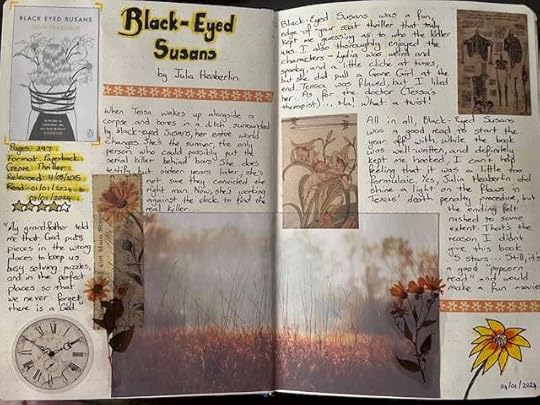 BLACK EYED SUSANS
Black-Eyed
Susans
by Julia Heaberlin
Pages: 347
Format: Paperback
Genre: Thriller
Read: 01/01/2024 →
When Tessa wakes up alongside a
corpse and bones in a ditch surrounded
by black-eyed Susans, her entire world
changes. She's the summer, the only
person who could possibly put the
serial killer behind bars! She does
testify but sixteen years later, she's
sure they convicted the
right man. Now, she's working
against the clock to find the
real killer.
"My grandfather told
me that God puts
pieces in the wrong
places to keep us
busy solving puzzles,
and in the perfect
places so that
we never forget
there is a God.
Black-Eyed Susans was a fun,
edge of your seat thriller that truly
kept me guessing as to who the killer
was. I also thoroughly enjoyed the
characters - Lydia was weird and
spooky and a little cliché at times,
but she did pull a Gone Girl at the
end, Tessa was flawed, but I liked
her. As for the doctor (Tessa's
therapist)... Ha! What a twist!
All in all, Black-Eyed Susans
was a good read to start the
year off with. While the book
was well-written, and definitely
kept me hooked, I can't help
feeling that it was a little too
formulaic. Yes, Julia Heaberlin did
shine a light on the flaws in
Texas' death penalty procedure, but
the ending felt
rushed to some
extent. That's the
reason I didn't
give this book
5 stars... Still, it's
a good popcorn
read" and would
make a fun movie
04/01/2024